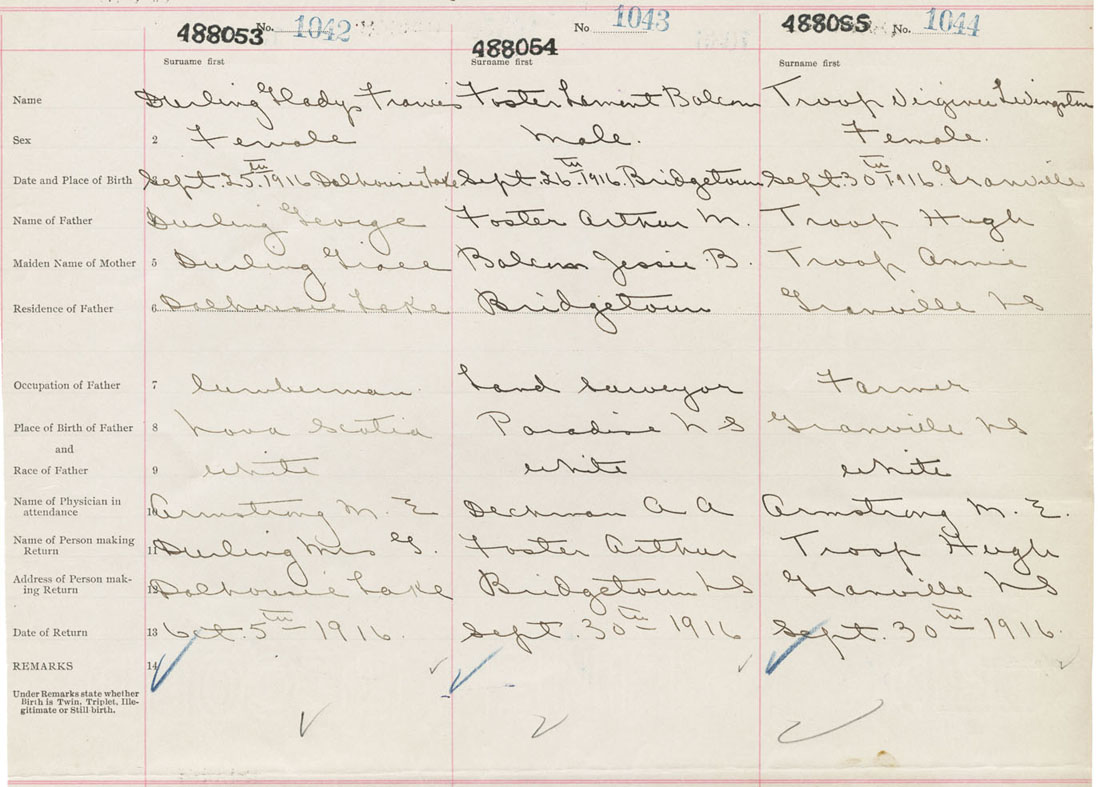 488053 No. 1042 488054 No 1043 488055 No. 1044
Surname first Surname first Surname first
Name Durling Gladys Francis Foster Lamont Balcom Troop Virginia Livingston
Sex 2 Female Male. Female.
Date and Place of Birth Sept. 25th 1916 Dalhousie Lake Sept. 26th 1916. Bridgetown Sept 30th 1916. Granville
Name of Father Durling George Foster Arthur M. Troop Hugh
Maiden Name of Mother 5 Durling Grace Balcom Jessie B. Troop Annie
Residence of Father 6 Dalhousie Lake Bridgetown Granville NS
Occupation of Father 7 lumberman Land Surveyor Farmer
Place of Birth of Father 8 Nova Scotia Paradise NS Granville NS
and
Race of Father 9 white white white
Name of Physician in
attendance 10 Armstrong M. E Deckman A A Armstrong M. E.
Name of Person making
Return 11 Durling Mrs G. Foster Arthur Troop Hugh
Address of Person mak-
ing Return 12 Dalhousie Lake Bridgetown NS Granville NS
Date of Return 13 Oct. 5th 1916. Sept. 30th 1916 Sept. 30th 1916.
REMARKS 14
Under Remarks state whether
Birth is Twin, Triplet, Ille-
gitimate or Still-birth.